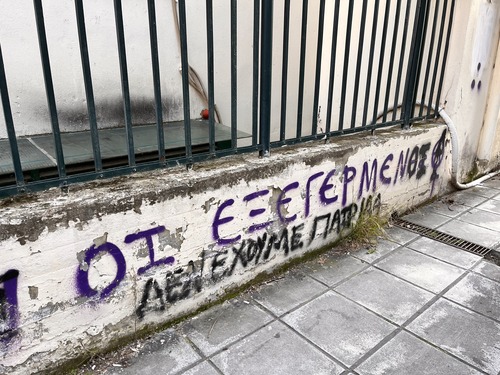 ΟΙ ΕΞΕΓΕΡΜΕΝΟΙ
ΔΕΝ ΕΧΟΥΜΕ ΠΑΤΡΙΔΑ